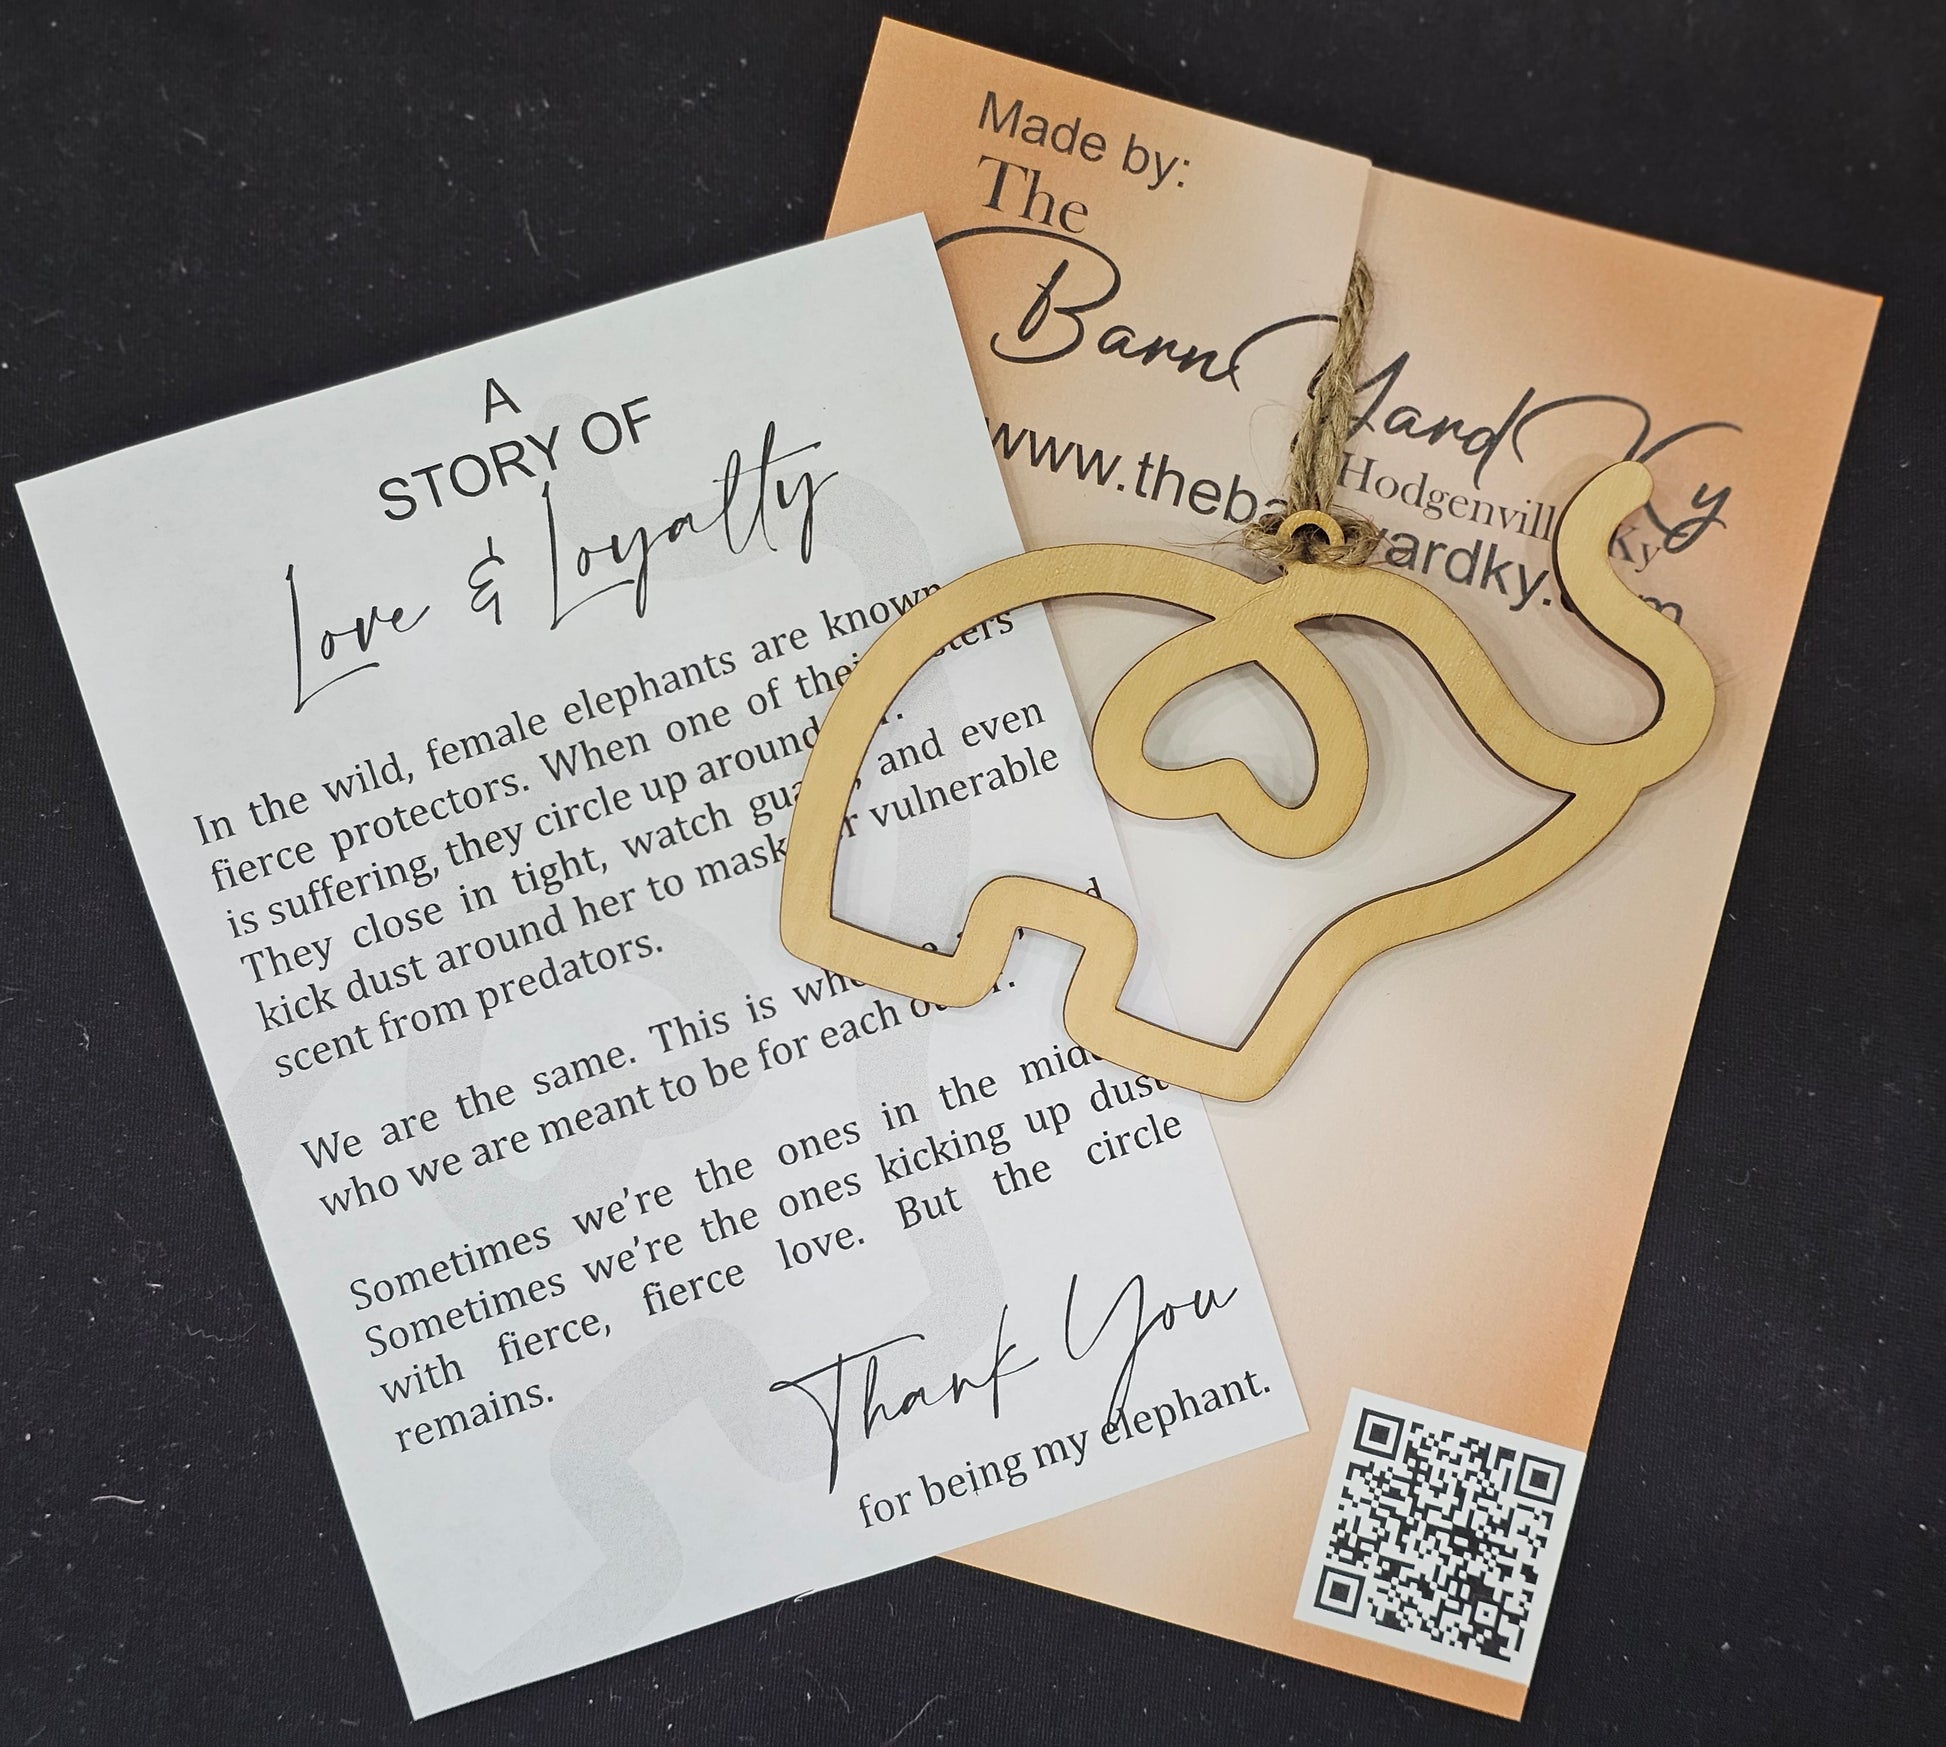 A
STORY OF
Love & Loyalty
In the wild, female elephants are known
fierce protectors. When one of their
is suffering, they circle up around
They close in tight, watch and even
kick dust around her to mask vulnerable
scent from predators.
We are the same. This is
who we are meant to be for each
Sometimes we're the ones in the
Sometimes we're the ones kicking up dust
with fierce, fierce love. But the circle
remains.
Thank You
for being my elephant.
Made by:
The
Barn Yard Ky
Hodgenvill Ky
www.theba yardky.